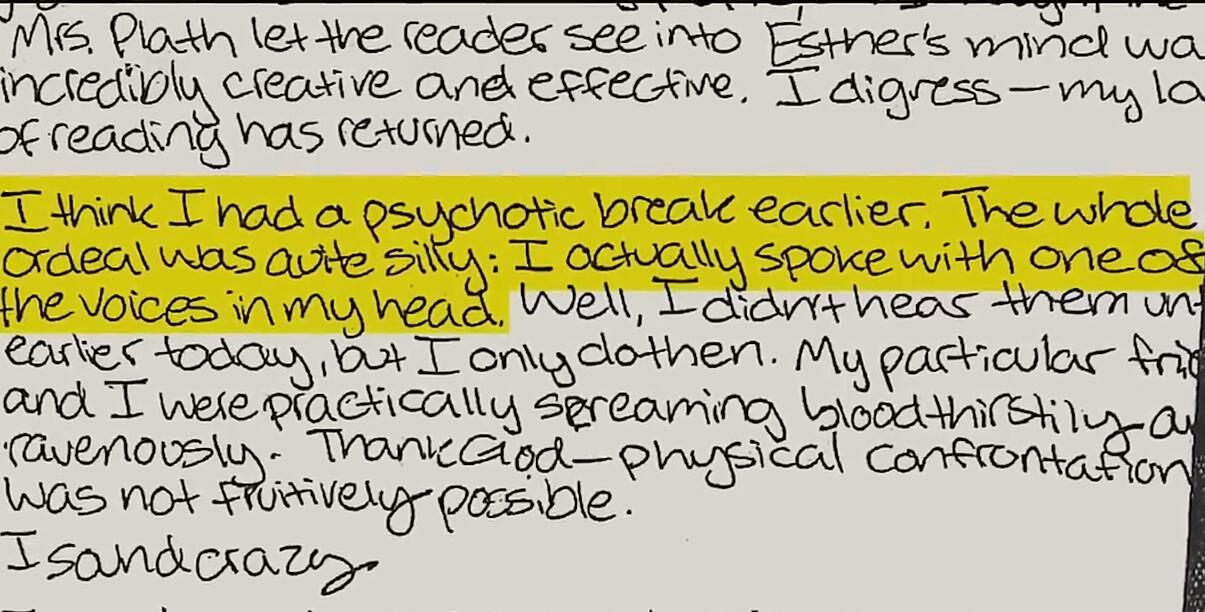 Mrs. Plath let the reader see into Esther's mind wa
incredibly creative and effective. I digress — my la
of reading has returned.
I think I had a psychotic break earlier. The whole
ordeal was quite silly: I actually spoke with one of
the voices in my head. Well, I didn't hear them un
earlier today, but I only do then. My particular frie
and I were practically screaming bloodthirstily a
ravenously. Thank God — physical confrontation
was not fruitively possible.
I sand crazy